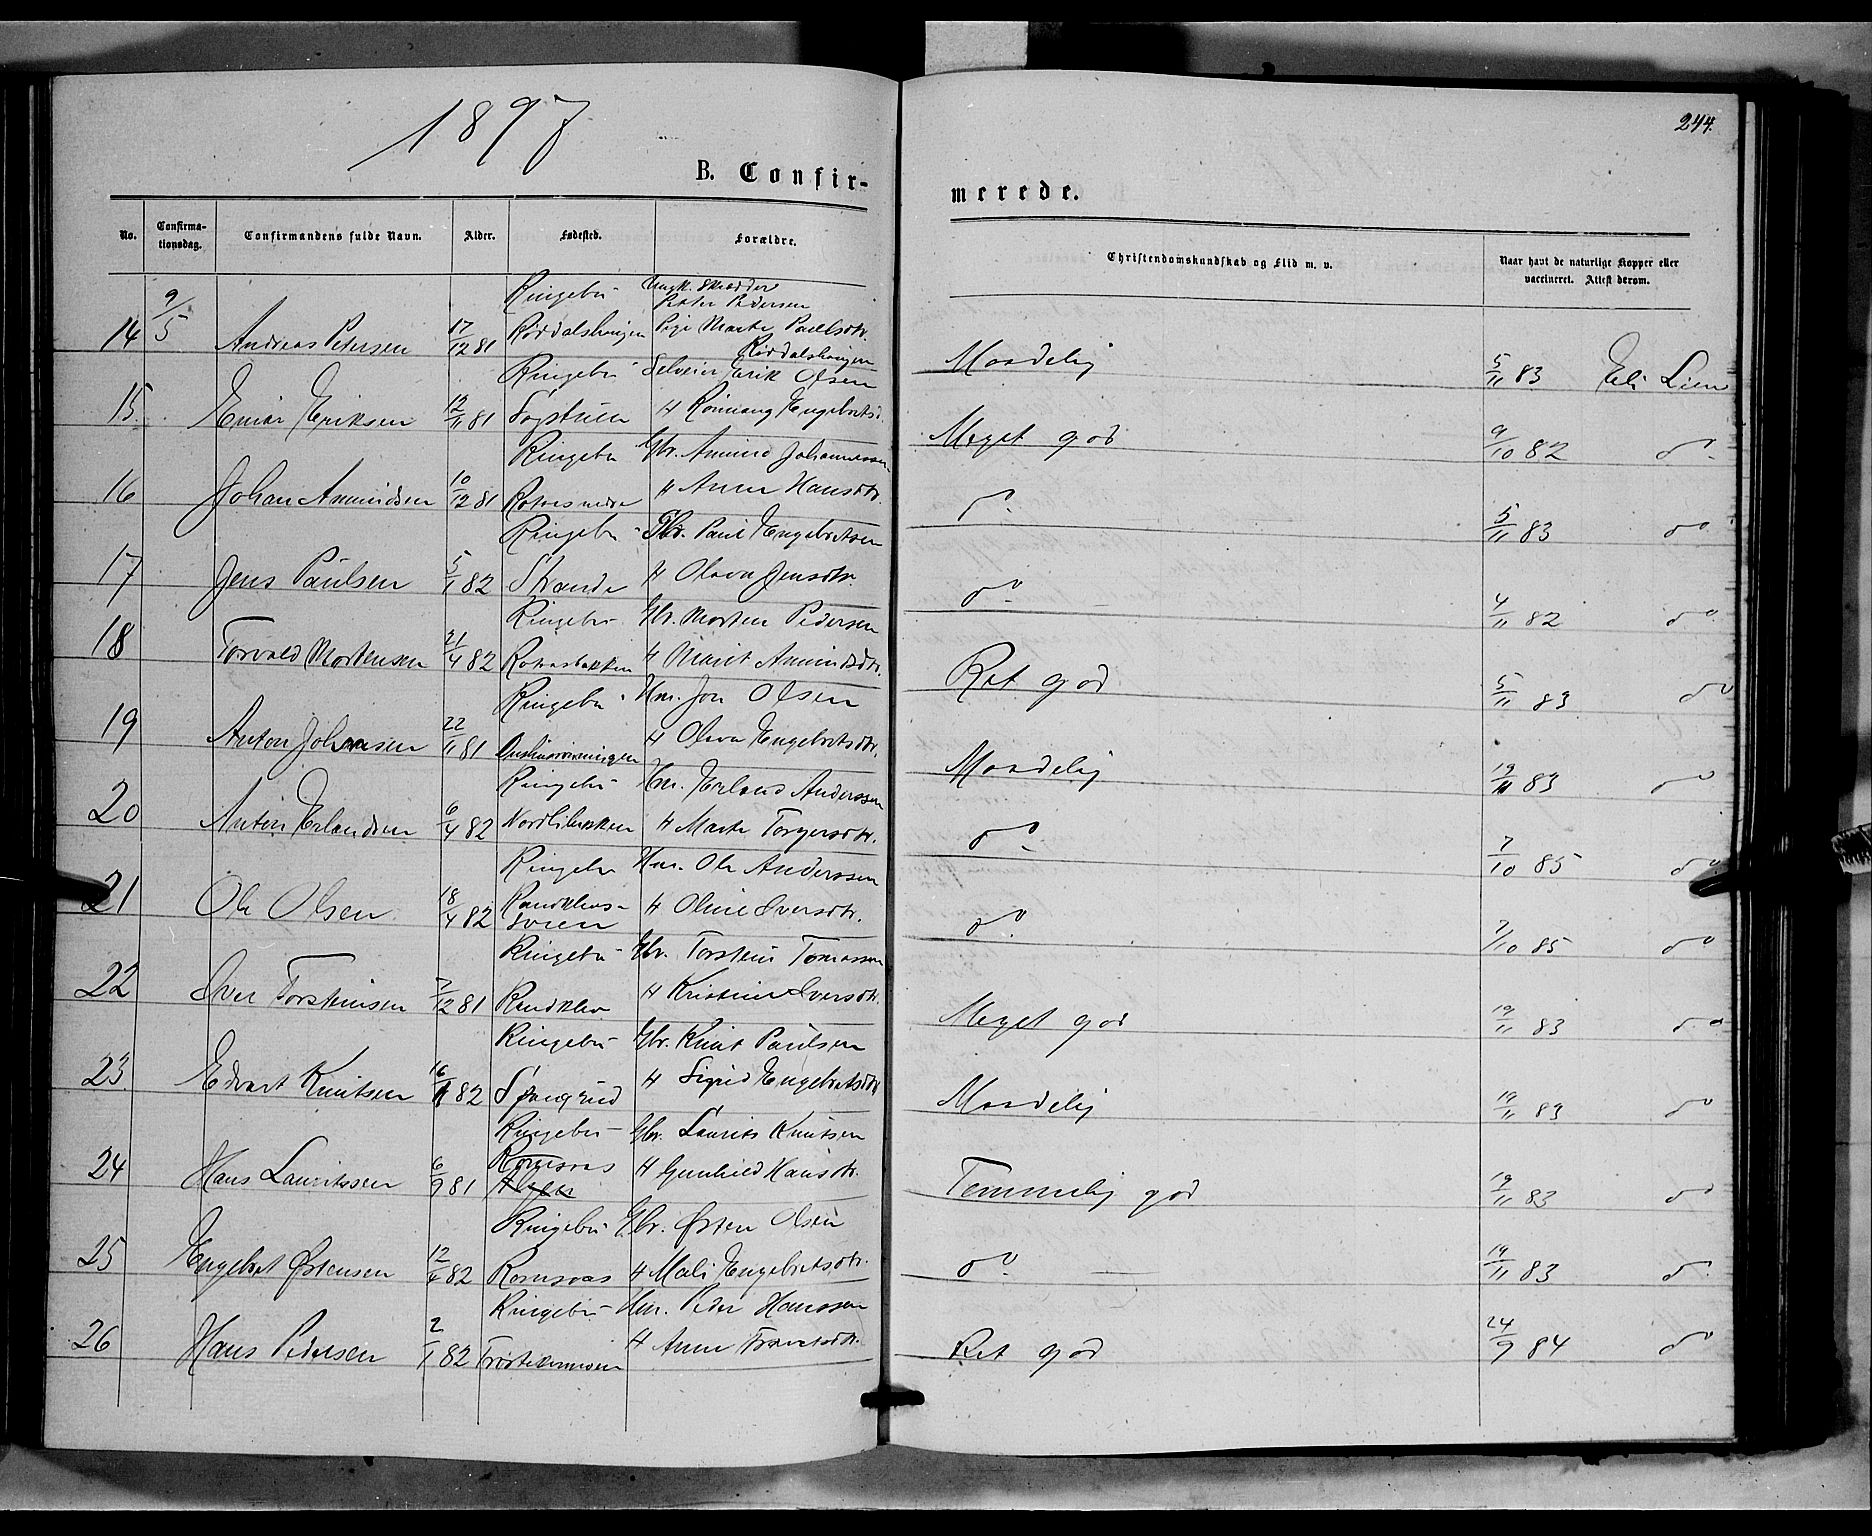 244.
1897
B. Confir-
merede.
No. Confirma-tionsdag. Confirmandens fulde Navn. Alder. Fødested. Forældre. Christendomskundskab og Flid m. v. Naar havt de naturlige Kopper eller vaccineret. Attest derom.
9/5 Ringebu Ungk. Skrædder
Peter Pedersen
14 Andreas Petersen 17/12 81 Pige Marte Paulsdtr. Maadelig 5/11 83 Eli Lien
Ringebu Selveier Erik Olsen
15. Einar Eriksen 12/11 81 Rønnaug Engebretsd. Meget god 9/10 82 do.
Ringebu Gbr. Amund Johannessen
16 Johan Amundsen 10/12 81 Anne Hansdtr. do. 5/11 83 do
Ringebu Gbr. Paul Engebretsen
17 Jens Paulsen 5/1 82 Strande Olava Jensdtr. do. 4/11 82 do
Ringebu Gbr. Morten Pedersen
18 Torvald Mortensen 21/4 82 Marit Amundsdtr. Ret god 5/11 83 do
Ringebu Hm. Jon Olsen
19 Anton Johnsen 22/11 81 Olava Engebretsdtr. Maadelig 19/11 83 do
Ringebu Hm. Erland Anderssen
20 Anton Erlandsen 6/4 82 Nordlibakken Marte Torgersdtr. do. 7/10 85 do
Ringebu Hm. Ole Anderssen
21 Ole Olsen 18/4 82 Randklev- Oline Iversdtr. do. 7/10 85 do
Ringebu Gbr. Torstein Tomassen
22 Iver Torsteinsen 7/12 81 Randklev Kristine Iversdtr. Meget god 19/11 83 do
Ringebu Gbr. Knut Paulsen
23 Edvart Knutsen 16/1 82 Sigrid Engebretsdtr. Maadelig 19/11 83 do
Ringebu Gbr. Laurits Knutsen
24 Hans Lauritssen 6/9 81 Romsaas Gunhild Hansdtr. Temmelig god 19/11 83 do
Ringebu Gbr. Østen Olsen
25 Engebret Østensen 12/4 82 Romsaas Mali Engebretsdtr. do. 19/11 83 do.
Ringebu Hm. Peder Hanssen
26 Hans Pedersen 2/1 82 Anne Frantsdtr. Ret god 24/9 84 do